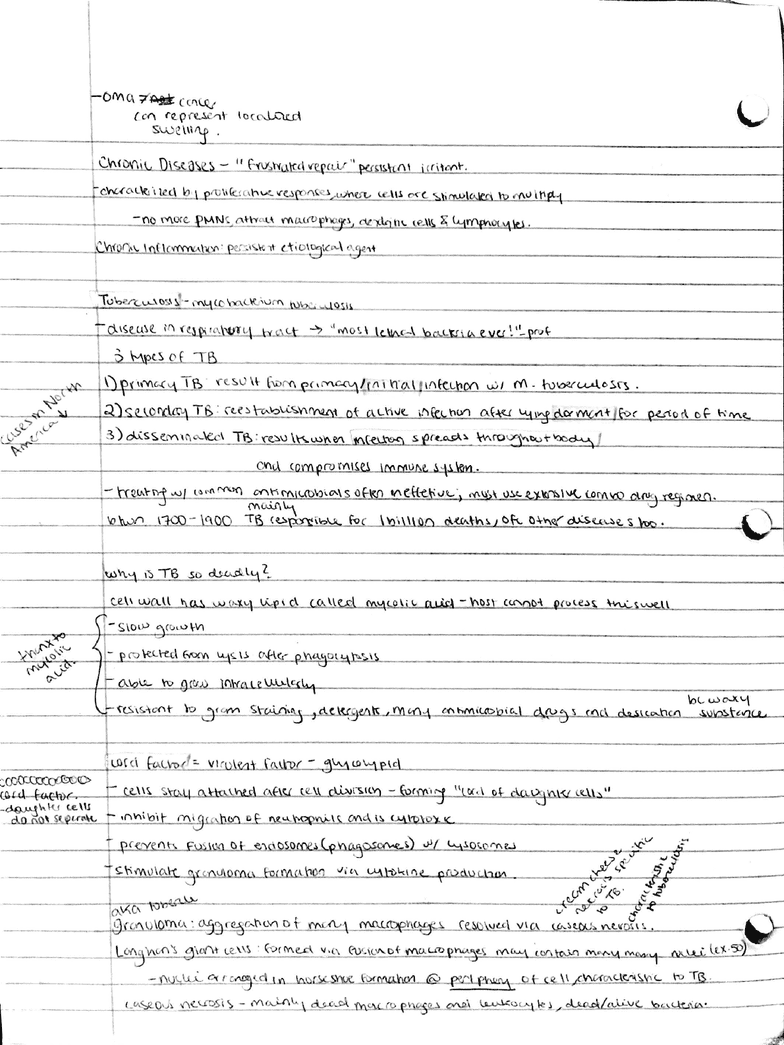 -oma ≠ cancer
can represent localized
swelling.
Chronic Diseases - "frustrated repair" persistent irritant.
-characterized by proliferative responses, where cells are stimulated to multiply
-no more PMNs, attract macrophages, dendritic cells & lymphocytes.
Chronic Inflammation: persistent etiological agent
Tuberculosis - mycobacterium tuberculosis
-disease in respiratory tract → "most lethal bacteria ever!" -prof
3 types of TB
1) primary TB: result from primary/initial infection w/ M. tuberculosis.
cases in North America
2) secondary TB: reestablishment of active infection after lying dormant for period of time
3) disseminated TB: results when infection spreads throughout body
and compromises immune system.
-treating w/ common antimicrobials often ineffective; must use extensive combo drug regimen.
mainly
btwn 1700-1900 TB responsible for 1 billion deaths, ofc other diseases too.
why is TB so deadly?
cell wall has waxy lipid called mycolic acid - host cannot process this well
thanx to mycolic acid.
-slow growth
-protected from lysis after phagocytosis
-able to grow intracellularly
bc waxy
-resistant to gram staining, detergents, many antimicrobial drugs and desication substance
cord factor = virulent factor - glycolypid
cord factor.
-daughter cells
do not separate
-cells stay attached after cell division - forming "cord of daughter cells"
-inhibit migration of neutrophils and is cytotoxic
-prevents fusion of endosomes (phagosomes) w/ lysosomes
-stimulate granuloma formation via cytokine production.
cream cheese necrosis specific to TB.
characteristic to tuberculosis
aka tubercle
granuloma: aggregation of many macrophages resolved via caseous necrosis.
Langhan's giant cells: formed via fusion of macrophages may contain many many nuclei (ex. 50)
-nuclei arranged in horseshoe formation @ periphery of cell, characteristic to TB.
caseous necrosis - mainly dead macrophages and leukocytes, dead/alive bacteria.